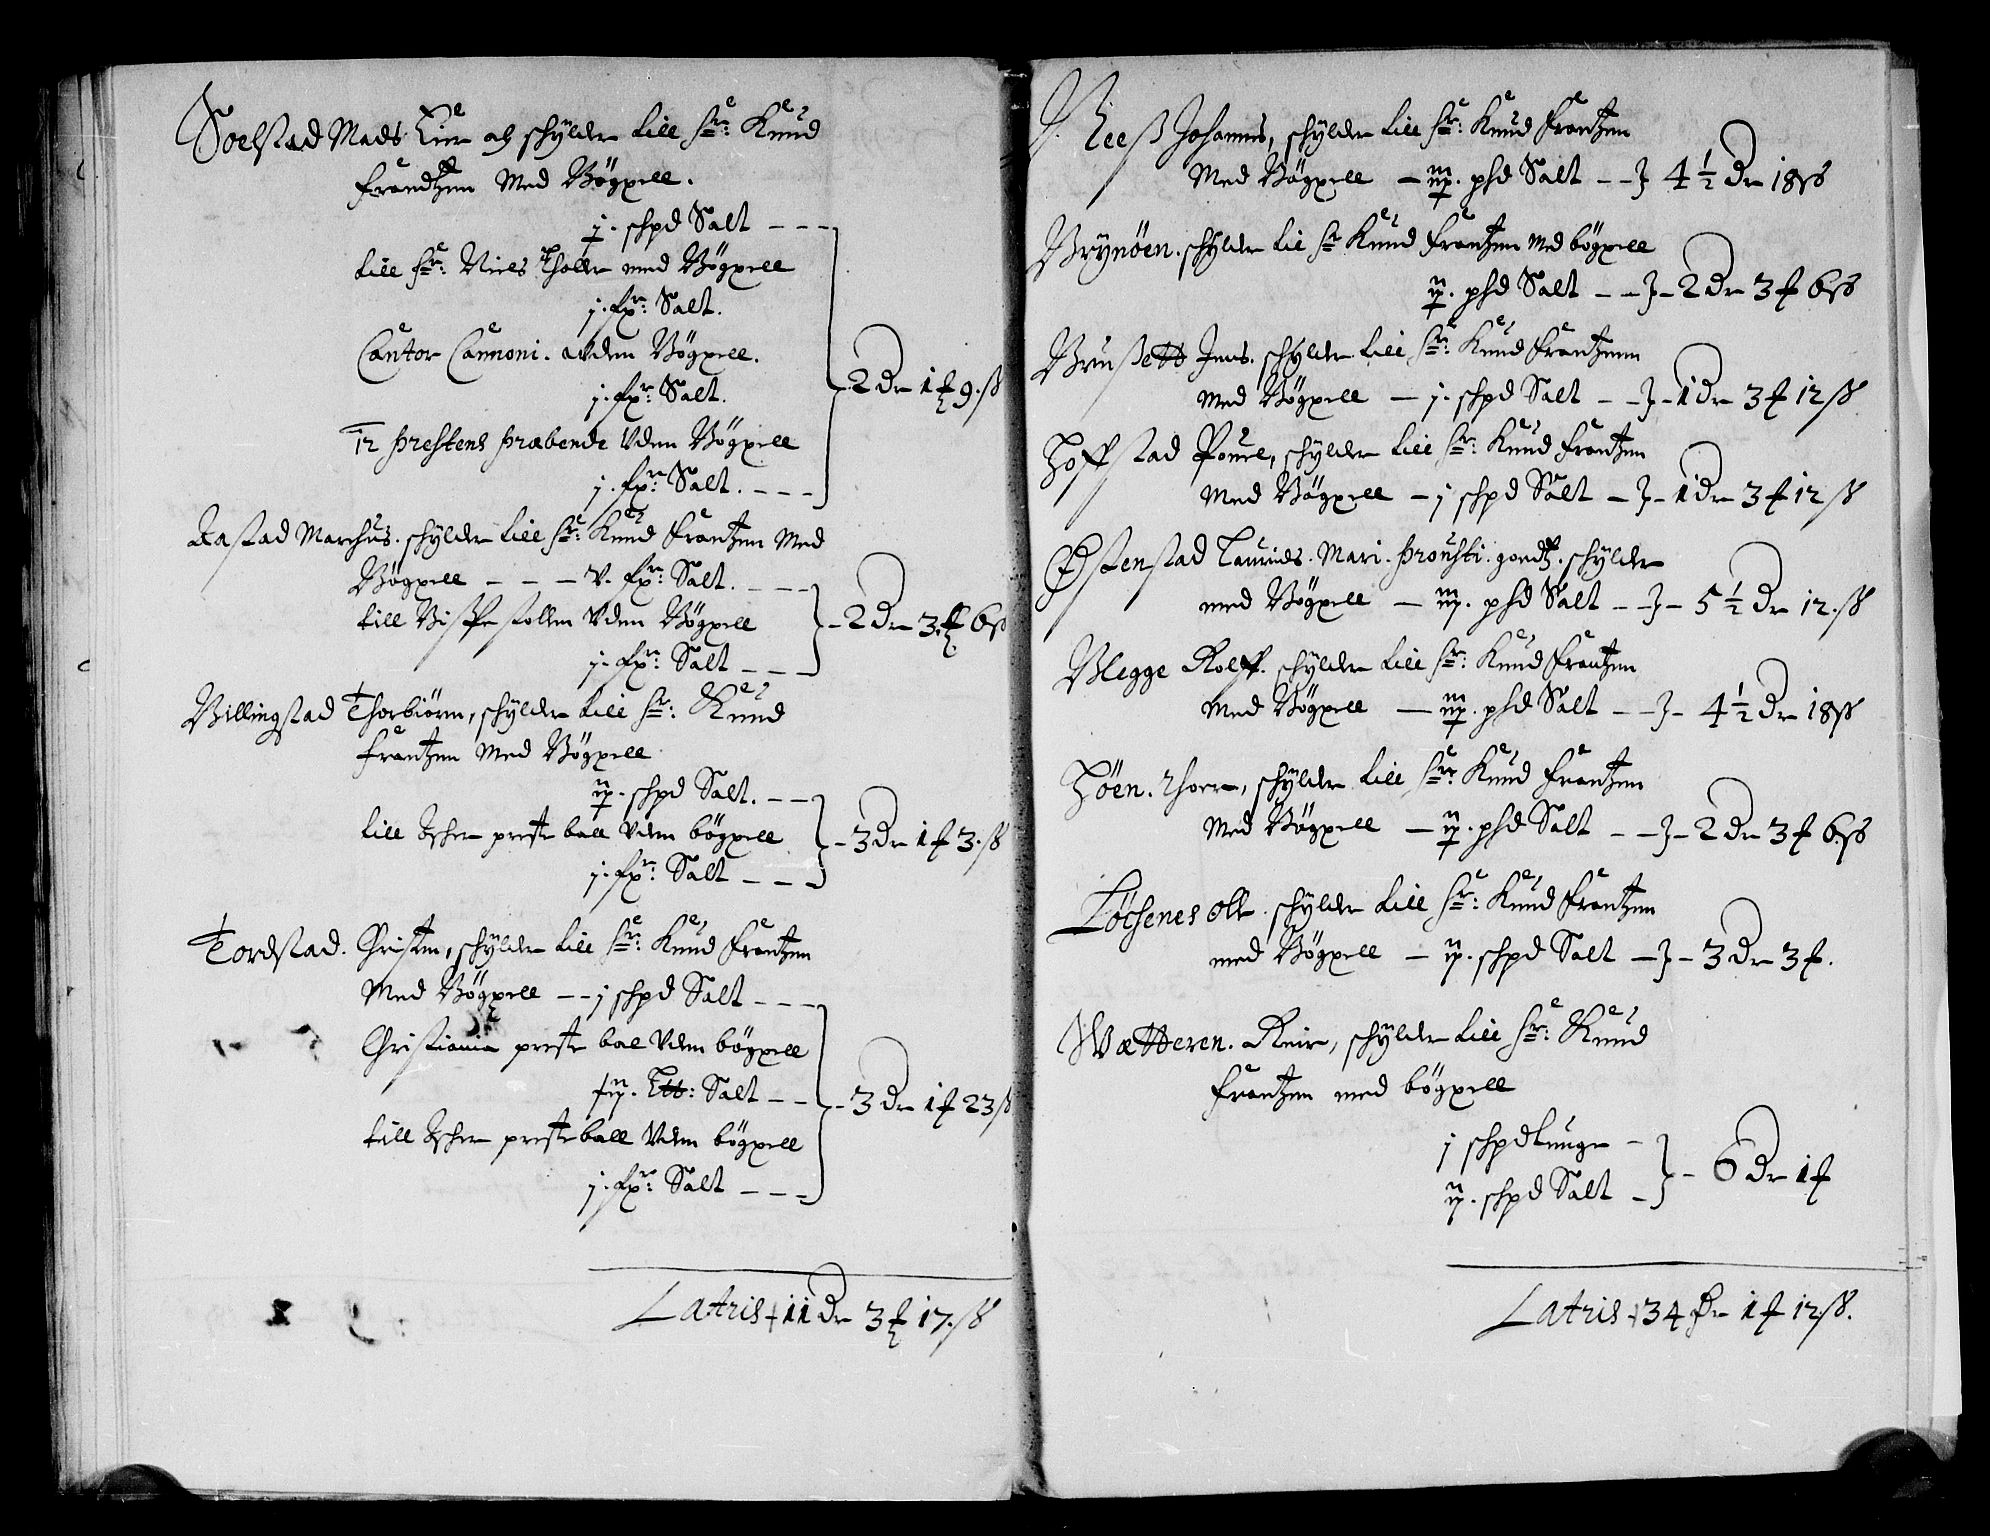 Soelstad Mads Eier oc schylder till Hr: Knud
Frandtzen Med Bögxell.
j. schpd Salt
till Hr: Niels Tholler med Bögxell
j. fxr: Salt.
Cantor Cannoni. uden Bögxell.
j. fxr: Salt.
12 Prestens Præbende Uden Bögxell
j. fxr: Salt. } 2 Dr 1 ƒ 9. ß
Rastad Marchus. schylder till Hr: Knud Frantzen Med
Bögxell v. fxr: Salt.
till Bispe stollen Uden Bögxell
j. fxr: Salt } 2 Dr 3 ƒ 6 ß
Billingstad Thorbiörn, schylder till Hr: Knud
Frantzen Med Bögxell
ij. schpd Salt.
till Ascher preste boll Uden bögxell
j. fxr: Salt } 3 Dr 1 ƒ 3. ß
Tordstad. Christen, schylder till Hr: Knud Frantzen
Med Bögxell j schpd Salt
Christiania preste bol Uden bögxell
Salt
till Ascher preste boll Uden bögxell
j. fxr: Salt } 3 Dr 1 ƒ 23 ß
Latris 11 Dr 3 ƒ 17. ß
Neess Johannes, schylder till Hr: Knud Frantzen
Med Bögxell iij. phd Salt 4 ½ Dr 18 ß
Brynöen. schylder till Hr Knud Frantzen Med bögxell
ij. phd Salt 2 Dr 3 ƒ 6 ß
Bruset Jens. schylder till Hr: Knud Frantzenn
med Bögxell j. schpd Salt 1 Dr 3 ƒ 12 ß
Hoffstad Pouel, schylder till Hr: Knud Frantzen
Med Bögxell j schpd Salt 1 Dr 3 ƒ 12 ß
Østenstad Laurids. Mari. Prousti. goedtz. schylder
med Bögxell iij. phd Salt 5 ½ Dr 12. ß
Blegge Rolff. schylder till Hr: Knud Frantzen
Med Bögxell iij. phd Salt 4 ½ Dr 18 ß
Höen. Thorer, schylder till Hr: Knud Frantzen
Med Bögxell ij. phd Salt 2 Dr 3 ƒ 6 ß
Löchenes Olle. schylder till Hr: Knud Frantzen
med Bögxell ij. schpd Salt 3 Dr 3 ƒ.
Wætteren. Reier, schylder till Hr: Knud
Frantzen med bögxell
j schpd tunge
ij. schpd Salt } 6 Dr 1 ƒ
Latris 34 Dr 1 ƒ 12 ß.